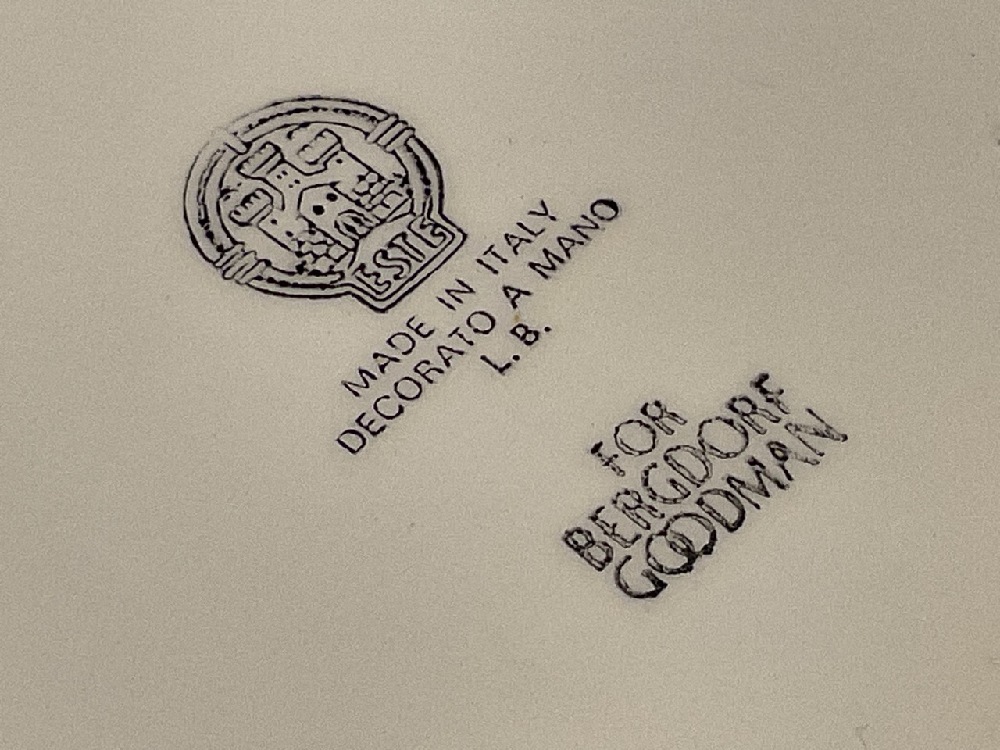 ESTE
MADE IN ITALY
DECORATO A MANO
L. B.
FOR
BERGDORF
GOODMAN